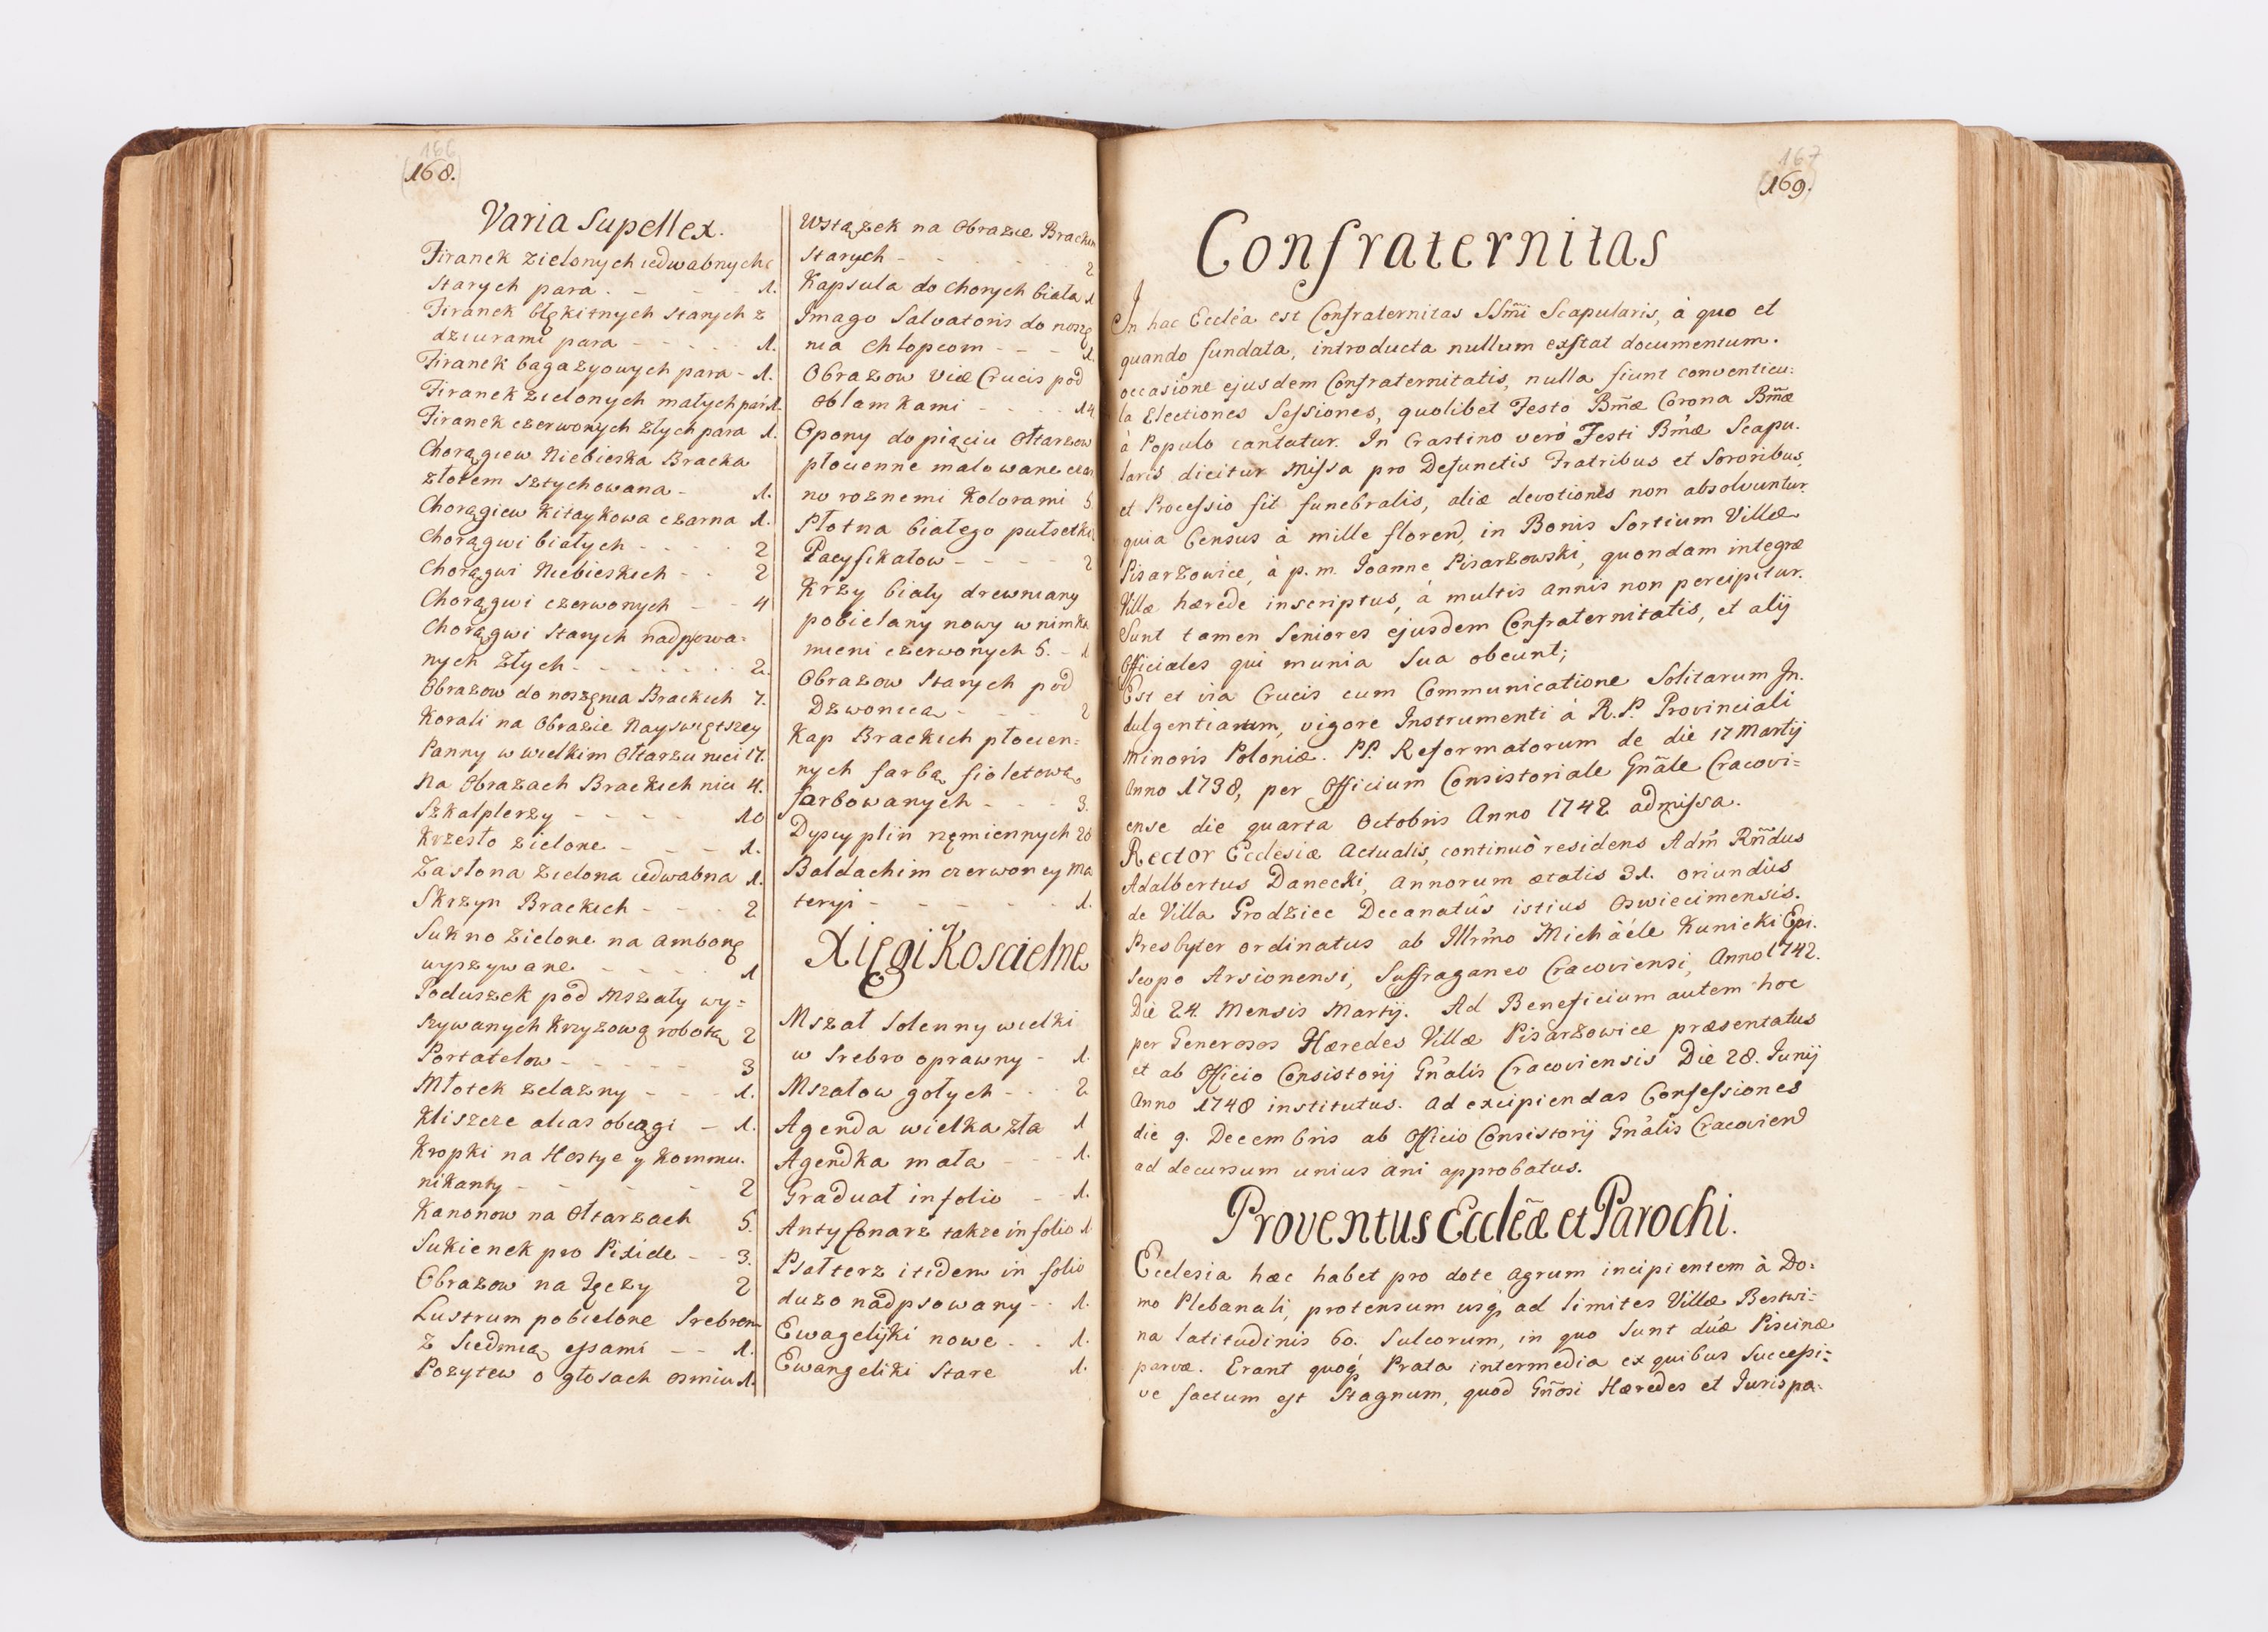 166
168.
Varia Supellex.
Firanek zielonych iedwabnych
starych para - - - 1.
Firanek błękitnych starych z
dziurami para - - - - - 1.
Firanek bagazyowych para - 1.
Firanek zielonych małych par 1.
Firanek czerwonych złych para 1.
Chorągiew Niebieska Bracka
złotem sztychowana - 1.
Chorągiew Kitaykowa czarna 1.
Chorągwi białych - - - - 2
Chorągwi Niebieskich - - 2
Chorągwi czerwonych - - 4
Chorągwi starych nadpsowa=
nych złych - - - - - - - 2.
Obrazow do noszęnia Brackich 7.
Korali na Obrazie Nayswiętszey
Panny w wielkim Ołtarzu nici 17.
Na Obrazach Brackich nici 4.
Szkaplerzy - - - - 10
Krzesło zielone - - - - 1.
Zasłona Zielona iedwabna 1.
Skrzyn Brackich - - - 2
Sukno Zielone na ambonę
wyszywane - - - - 1
Poduszek pod Mszały wy=
szywanych Krzyzową robotą 2
Portatelow - - - - - 3
Młotek zelazny - - - 1.
Kliszcze alias obcągi - 1.
Kropki na Hostye y Kommu.
nikanty - - - - - 2
Kanonow na Ołtarzach 5.
Sukienek pro Pixide - - 3.
Obrazow na Tęczy 2
Lustrum pobielone Srebrem
z Siedmią essami - - 1.
Pozytew o głosach osmiu 1.
Wstązek na Obrazie Brackim
starych - - - - - - 2
Kapsula do chorych biała 1
Imago Salvatoris do noszę
nia chłopcom - - - 1.
Obrazow Viæ Crucis pod
oblamkami - - - - 14
Opony do piąciu Ołtarzow
płocienne malowane czar
no roznemi Kolorami 5
Płotna białego pułsetki
Pacyfikałow - - - - 2
Krzy biały drewniany
pobielany nowy w nim ka
mieni czerwonych 5. - 1
Obrazow Starych pod
Dzwonicą - - - 2
Kap Brackich płocien=
nych farbą fioletową
farbowanych - - - 3.
Dyscyplin rzemiennych 28
Baldachim czerwoney ma
teryi - - - - - - 1.
Xięgi Koscielne
Mszał Solenny wielki
w Srebro oprawny - 1.
Mszałow gołych - - 2
Agenda wielka zła 1
Agendka mała - - - 1.
Graduał in folio - - 1.
Antyfonarz takze in folio 1
Psałterz itidem in folio
duzo nadpsowany - - 1.
Ewagelijki nowe . . 1.
Ewangeliki Stare 1.
167
169.
Confraternitas
In hac Eccl̃a est Confraternitas SSm̃i Scapularis, à quo et
quando fundata, introducta nullum exstat documentum.
occasione ejusdem Confraternitatis, nulla fiunt conventicu:
la Electiones Sessiones, quolibet Festo Bm̃æ Corona Bm̃æ
à Populo cantatur. In Crastino verò Festi Bm̃æ Scapu.
laris dicitur Missa pro Defunctis Fratribus et Sororibus,
et Processio fit funebralis, aliæ devotiones non absolvuntur.
quia Census à mille floren, in Bonis Sortium Villæ
Pisarzowice, à p. m. Joanne Pisarzowski, quondam integræ
Villæ hærede inscriptus, à multis annis non percipitur.
Sunt tamen Seniores ejusdem Confraternitatis, et alij
Officiales qui munia Sua obeunt;
Est et via Crucis cum Communicatione Solitarum In.
dulgentiarum, vigore Instrumenti à R.P. Provinciali
minoris Poloniæ. PP. Reformatorum de die 17 Martij
Anno 1738, per Officium Consistoriale Gñale Cracovi=
ense die quarta Octobris Anno 1742 admissa.
Rector Ecclesiæ Actualis, continuò residens Adm̃ Rñdus
Adalbertus Danecki, Annorum ætatis 31. oriundus
de Villa Grodziec Decanatûs istius Oswiecimensis.
Presbyter ordinatus ab Illr̃mo Michaéle Kunicki Epi.
scopo Arsionensi, Suffraganeo Cracoviensi, Anno 1742.
Die 24. Mensis Martij. Ad Beneficium autem hoc
per Generosos Hæredes Villæ Pisarzowice præsentatus
et ab Officio Consistorij Gñalis Cracoviensis Die 28. Junij
Anno 1748 institutus. ad excipiendas Confessiones
die 9. Decembris ab Officio Consistorij Gñalis Cracovien
ad decursum unius ani approbatus.
Proventus Eccleæ̃ et Parochi.
Ecclesia hæc habet pro dote agrum incipientem à Do=
mo Plebanali, protensum usq ad limites Villæ Bestwi=
na latitudinis 60. Sulcorum, in quo Sunt duæ Piscinæ
parvæ. Erant quoq Prata intermedia ex quibus Successi=
ve factum est Stagnum, quod Gñosi Hæredes et Juris pa=